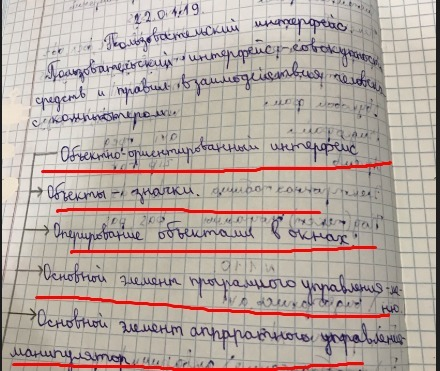 22.01.19
Пользовательский интерфейс.
Пользовательский интерфейс - совокупность
средств и правил взаимодействия человека
с компьютером.
Объектно-ориентированный интерфейс
Объекты - значки.
Оперирование объектами в окнах.
Основной элемент програмного управления - ме
ню
Основной элемент аппаратного управления -
манипулятор